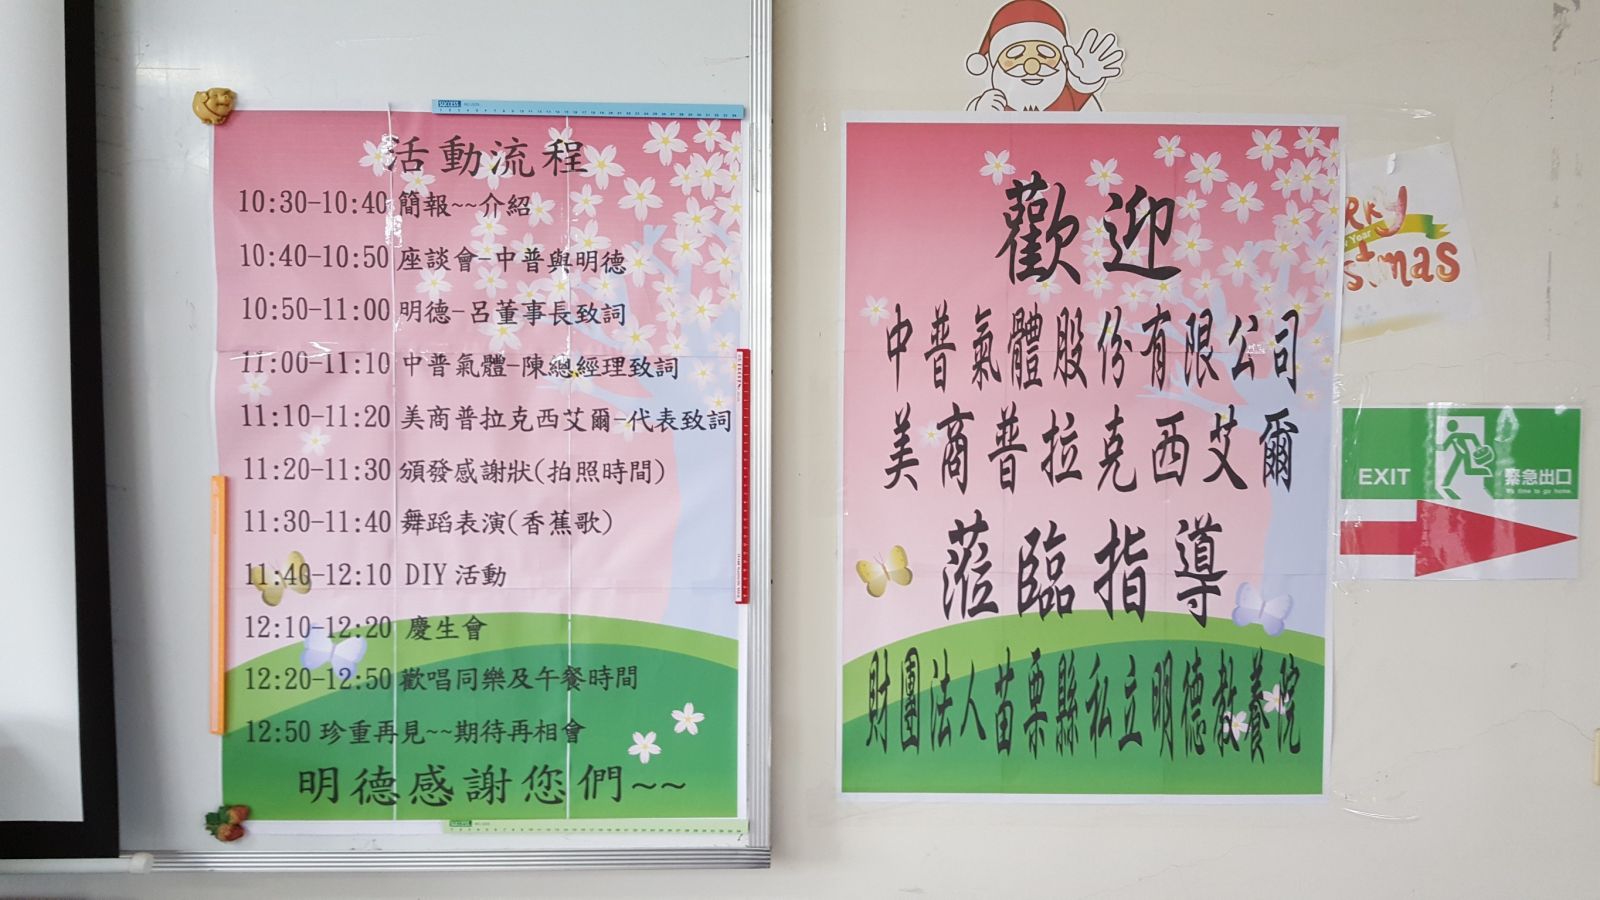 活動流程
10:30-10:40 簡報~~介紹
10:40-10:50 座談會-中普與明德
10:50-11:00 明德-呂董事長致詞
11:00-11:10 中普氣體-陳總經理致詞
11:10-11:20 美商普拉克西艾爾-代表致詞
11:20-11:30 頒發感謝狀(拍照時間)
11:30-11:40 舞蹈表演(香蕉歌)
11:40-12:10 DIY 活動
12:10-12:20 慶生會
12:20-12:50 歡唱同樂及午餐時間
12:50 珍重再見~~期待再相會
明德感謝您們~~
歡迎
中普氣體股份有限公司
美商普拉克西艾爾
蒞臨指導
財團法人苗栗縣私立明德教養院
EXIT 緊急出口
It's time to go home.
SUCCESS